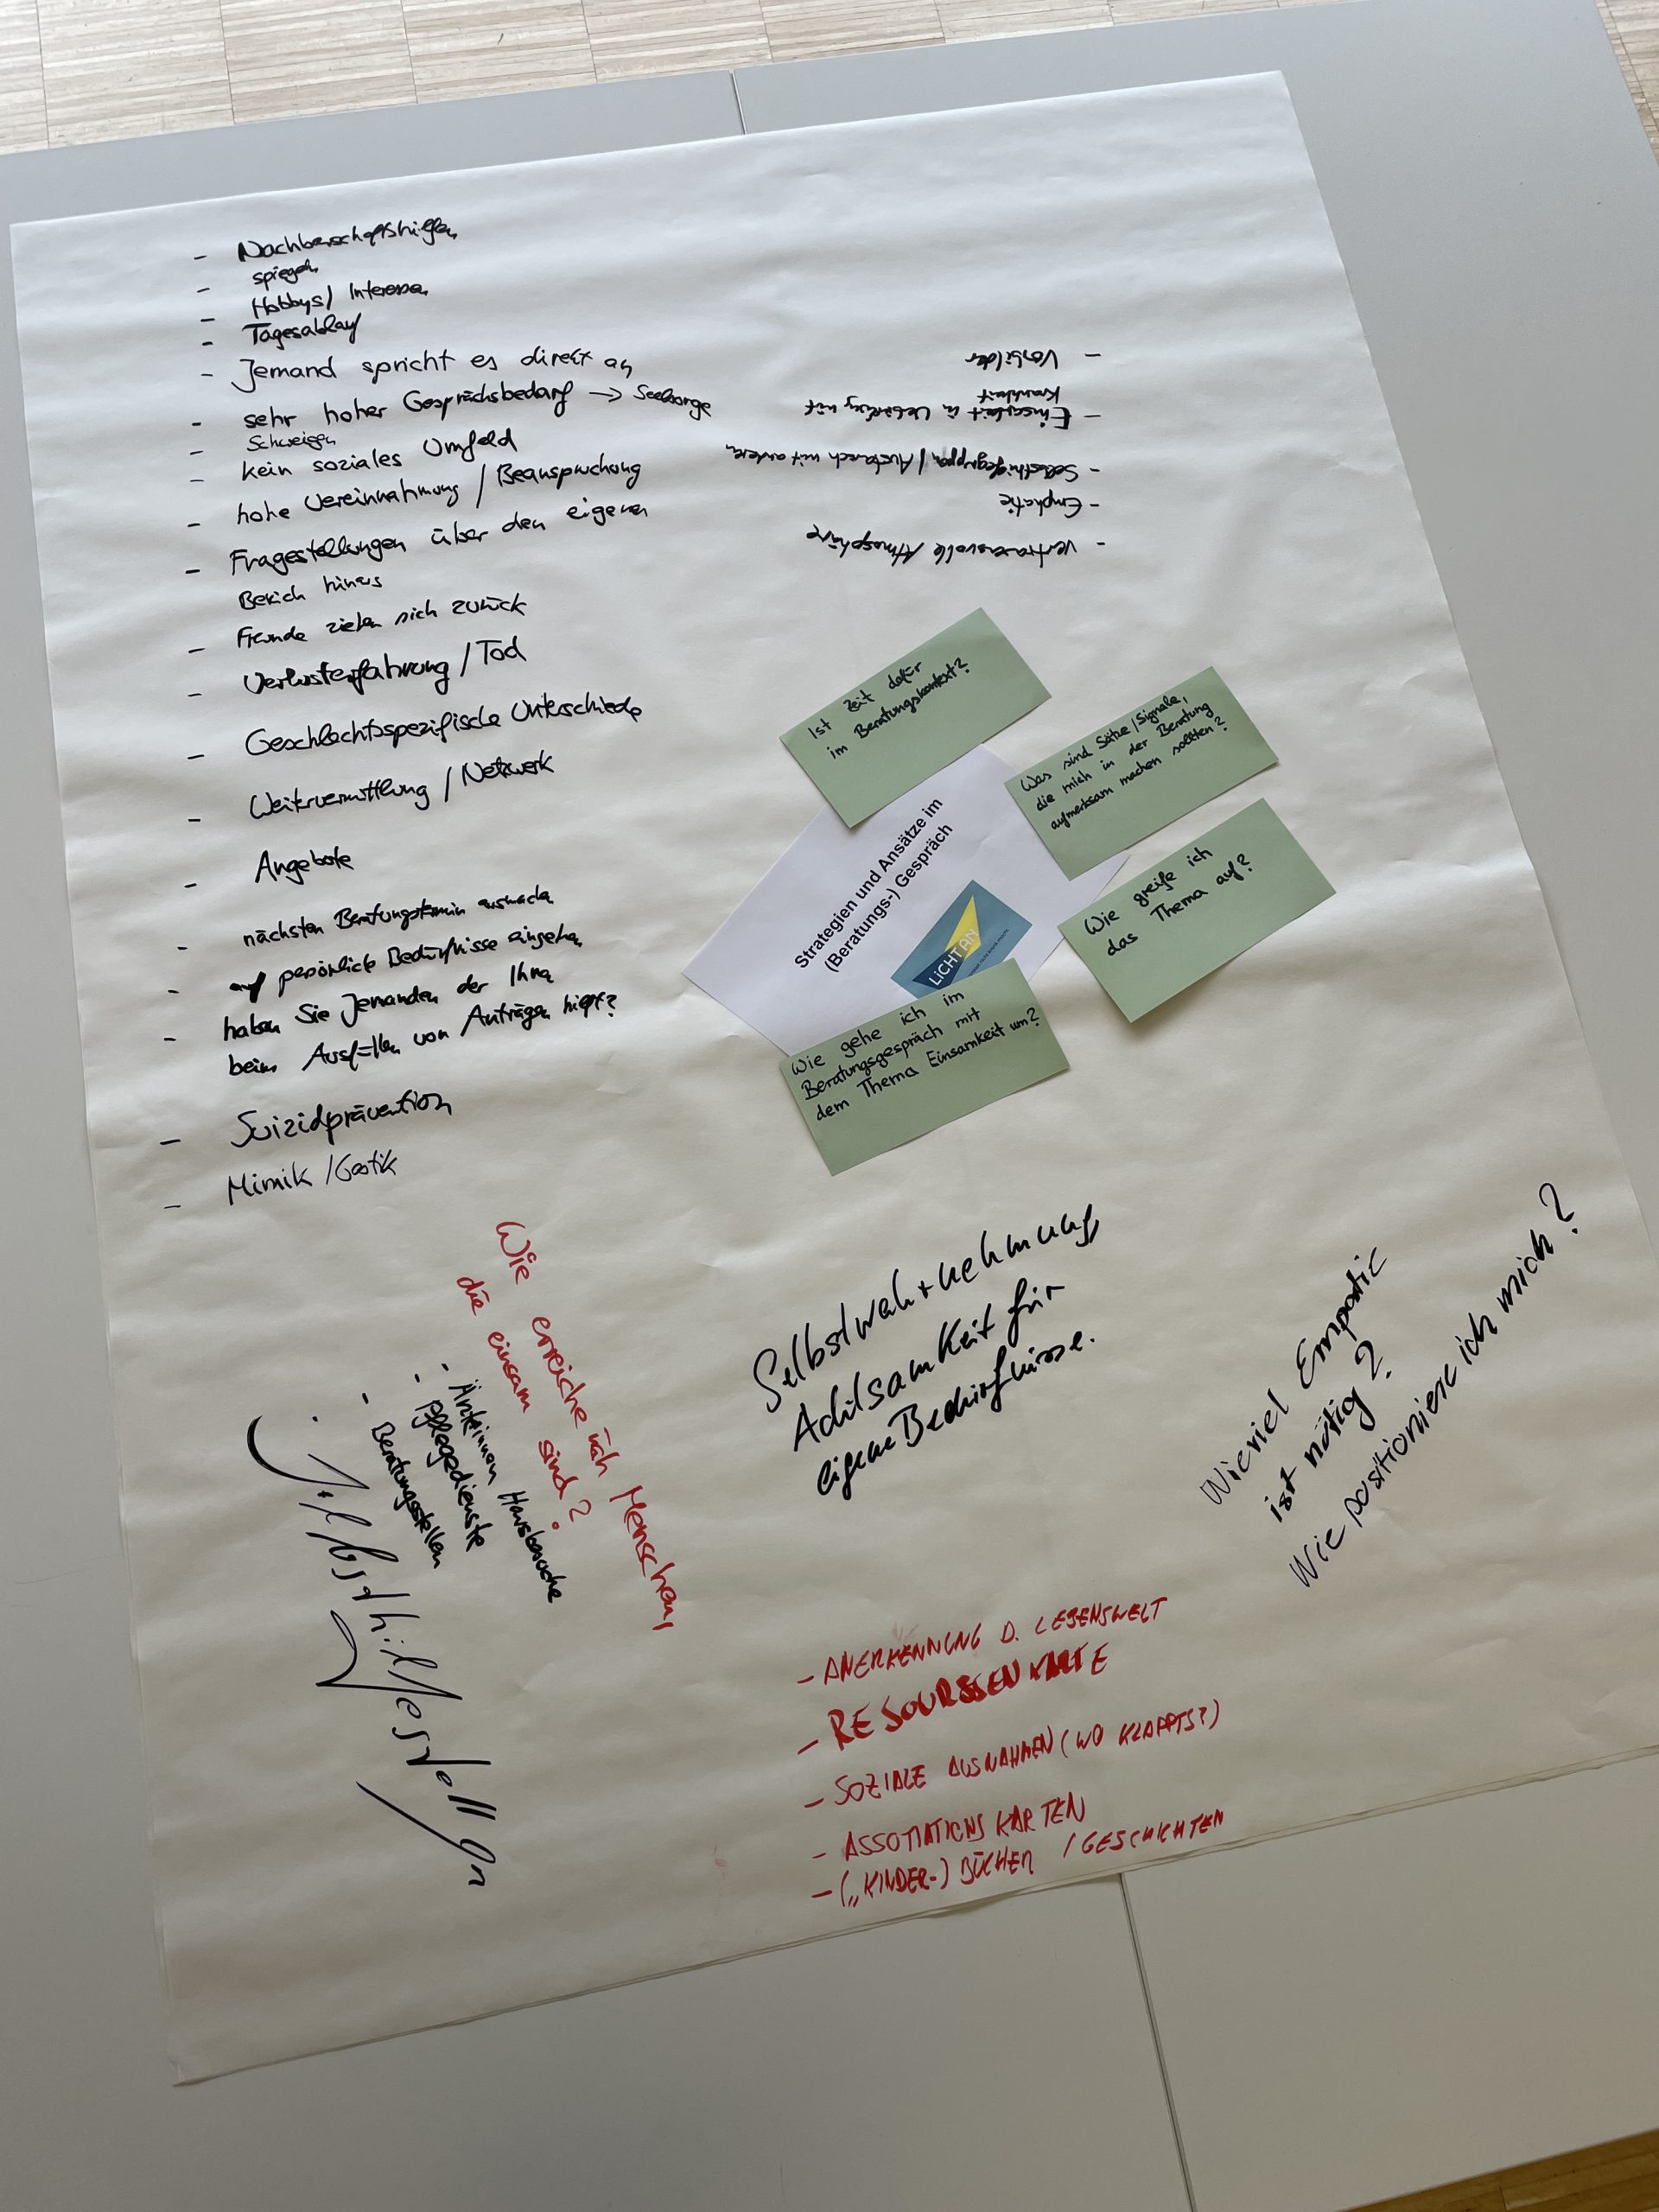 - Nachbarschaftshilfen
- spiegeln
- Hobbys / Interessen
- Tagesablauf
- Jemand spricht es direkt an
- sehr hoher Gesprächsbedarf → Seelsorge
- Schweigen
- kein soziales Umfeld
- hohe Vereinnahmung / Beanspruchung
- Fragestellungen über den eigenen
Bereich hinaus
- Freunde ziehen sich zurück
- Verlusterfahrung / Tod
- Geschlechtsspezifische Unterschiede
- Weitervermittlung / Netzwerk
- Angebote
- nächsten Beratungstermin ausmachen
- auf persönliche Bedürfnisse eingehen
- haben Sie Jemanden der Ihnen
beim Ausfüllen von Anträgen hilft?
- Suizidprävention
- Mimik / Gestik
- vertrauensvolle Atmosphäre
- Emphatie
- Selbsthilfegruppen / Austausch mit anderen
- Einsamkeit in Verbindung mit
Krankheit
- Vorbilder
Ist Zeit dafür
im Beratungskontext?
Was sind Sätze / Signale,
die mich in der Beratung
aufmerksam machen sollten?
Wie greife ich
das Thema auf?
Strategien und Ansätze im
(Beratungs-) Gespräch
LiCHT AN
Wie gehe ich im
Beratungsgespräch mit
dem Thema Einsamkeit um?
Wie erreiche ich Menschen,
die einsam sind?
- Ärztinnen Hausbesuche
- Pflegedienste
- Beratungsstellen
Selbsthilfestellen
Selbstwahrnehmung
Achtsamkeit für
eigene Bedürfnisse.
Wieviel Empatie
ist nötig?
Wie positioniere ich mich?
- ANERKENNUNG D. LEBENSWELT
- RESOURSSENKARTE
- SOZIALE AUSNAHMEN (WO KLAPPTS?)
- ASSOTIATIONSKARTEN
- („KINDER-) BÜCHER / GESCHICHTEN